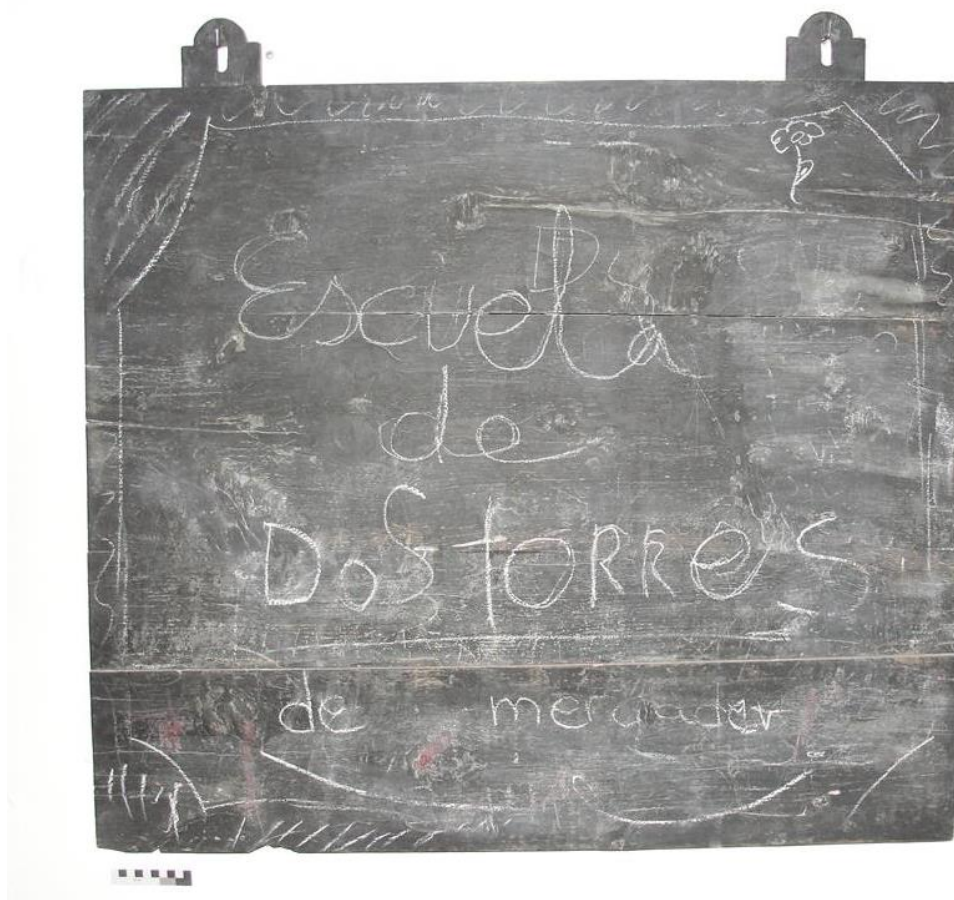 Escuela
de
DoS TORReS
de mercader